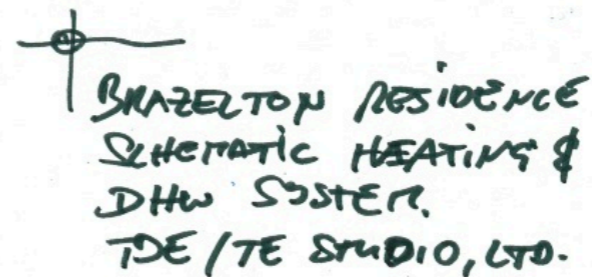 BRAZELTON RESIDENCE
SCHEMATIC HEATING &
DHW SYSTEM.
TDE/TE STUDIO, LTD.